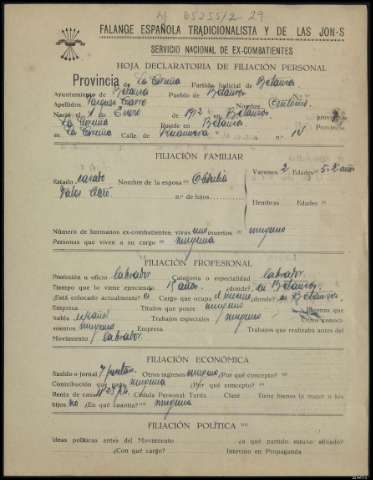 65255/2-29
FALANGE ESPAÑOLA TRADICIONALISTA Y DE LAS JON-S
SERVICIO NACIONAL DE EX-COMBATIENTES
HOJA DECLARATORIA DE FILIACIÓN PERSONAL
Provincia de La Coruña Partido Judicial de Betanzos
Ayuntamiento de Betanzos Pueblo de Betanzos
Apellidos Vazquez Nombre
Nació el 1 de Enero de 1912 en Betanzos provincia
La Coruña Reside en Betanzos provincia
La Coruña Calle de n.º
FILIACIÓN FAMILIAR
Estado casado Nombre de la esposa Obdulia Varones 2 Edades 5-2 años
n.º de hijos
Hembras Edades
Número de hermanos ex-combatientes vivos uno muertos ninguno
Personas que viven a su cargo ninguna
FILIACIÓN PROFESIONAL
Profesión u oficio labrador Categoría o especialidad labrador
Tiempo que lo viene ejerciendo 15 años ¿donde? en Betanzos
¿Está colocado actualmente? Cargo que ocupa el mismo ¿donde? en Betanzos
Empresa Títulos que posee ninguno Idiomas que
habla español Trabajos especiales ninguno Otros conoci-
mientos ninguno Empresa Trabajos que realizaba antes del
Movimiento labrador
FILIACIÓN ECONÓMICA
Sueldo o jornal 7 pesetas Otros ingresos ninguno ¿Por qué concepto?
Contribución que paga ninguna ¿Por qué concepto?
Renta de casa Cédula Personal Tarifa Clase Tiene bienes la mujer o los
hijos no ¿En qué cuantía? ninguna
FILIACIÓN POLÍTICA
Ideas políticas antes del Movimiento ¿a qué partido estuvo afiliado?
¿Con qué cargo? Intervino en Propaganda